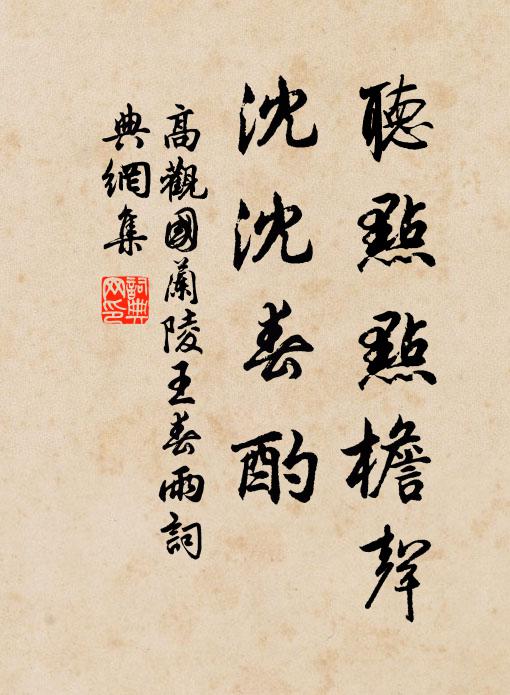 聽點點檐聲
沈沈春酌
高觀國蘭陵王春雨詞
典網集
詞典網印